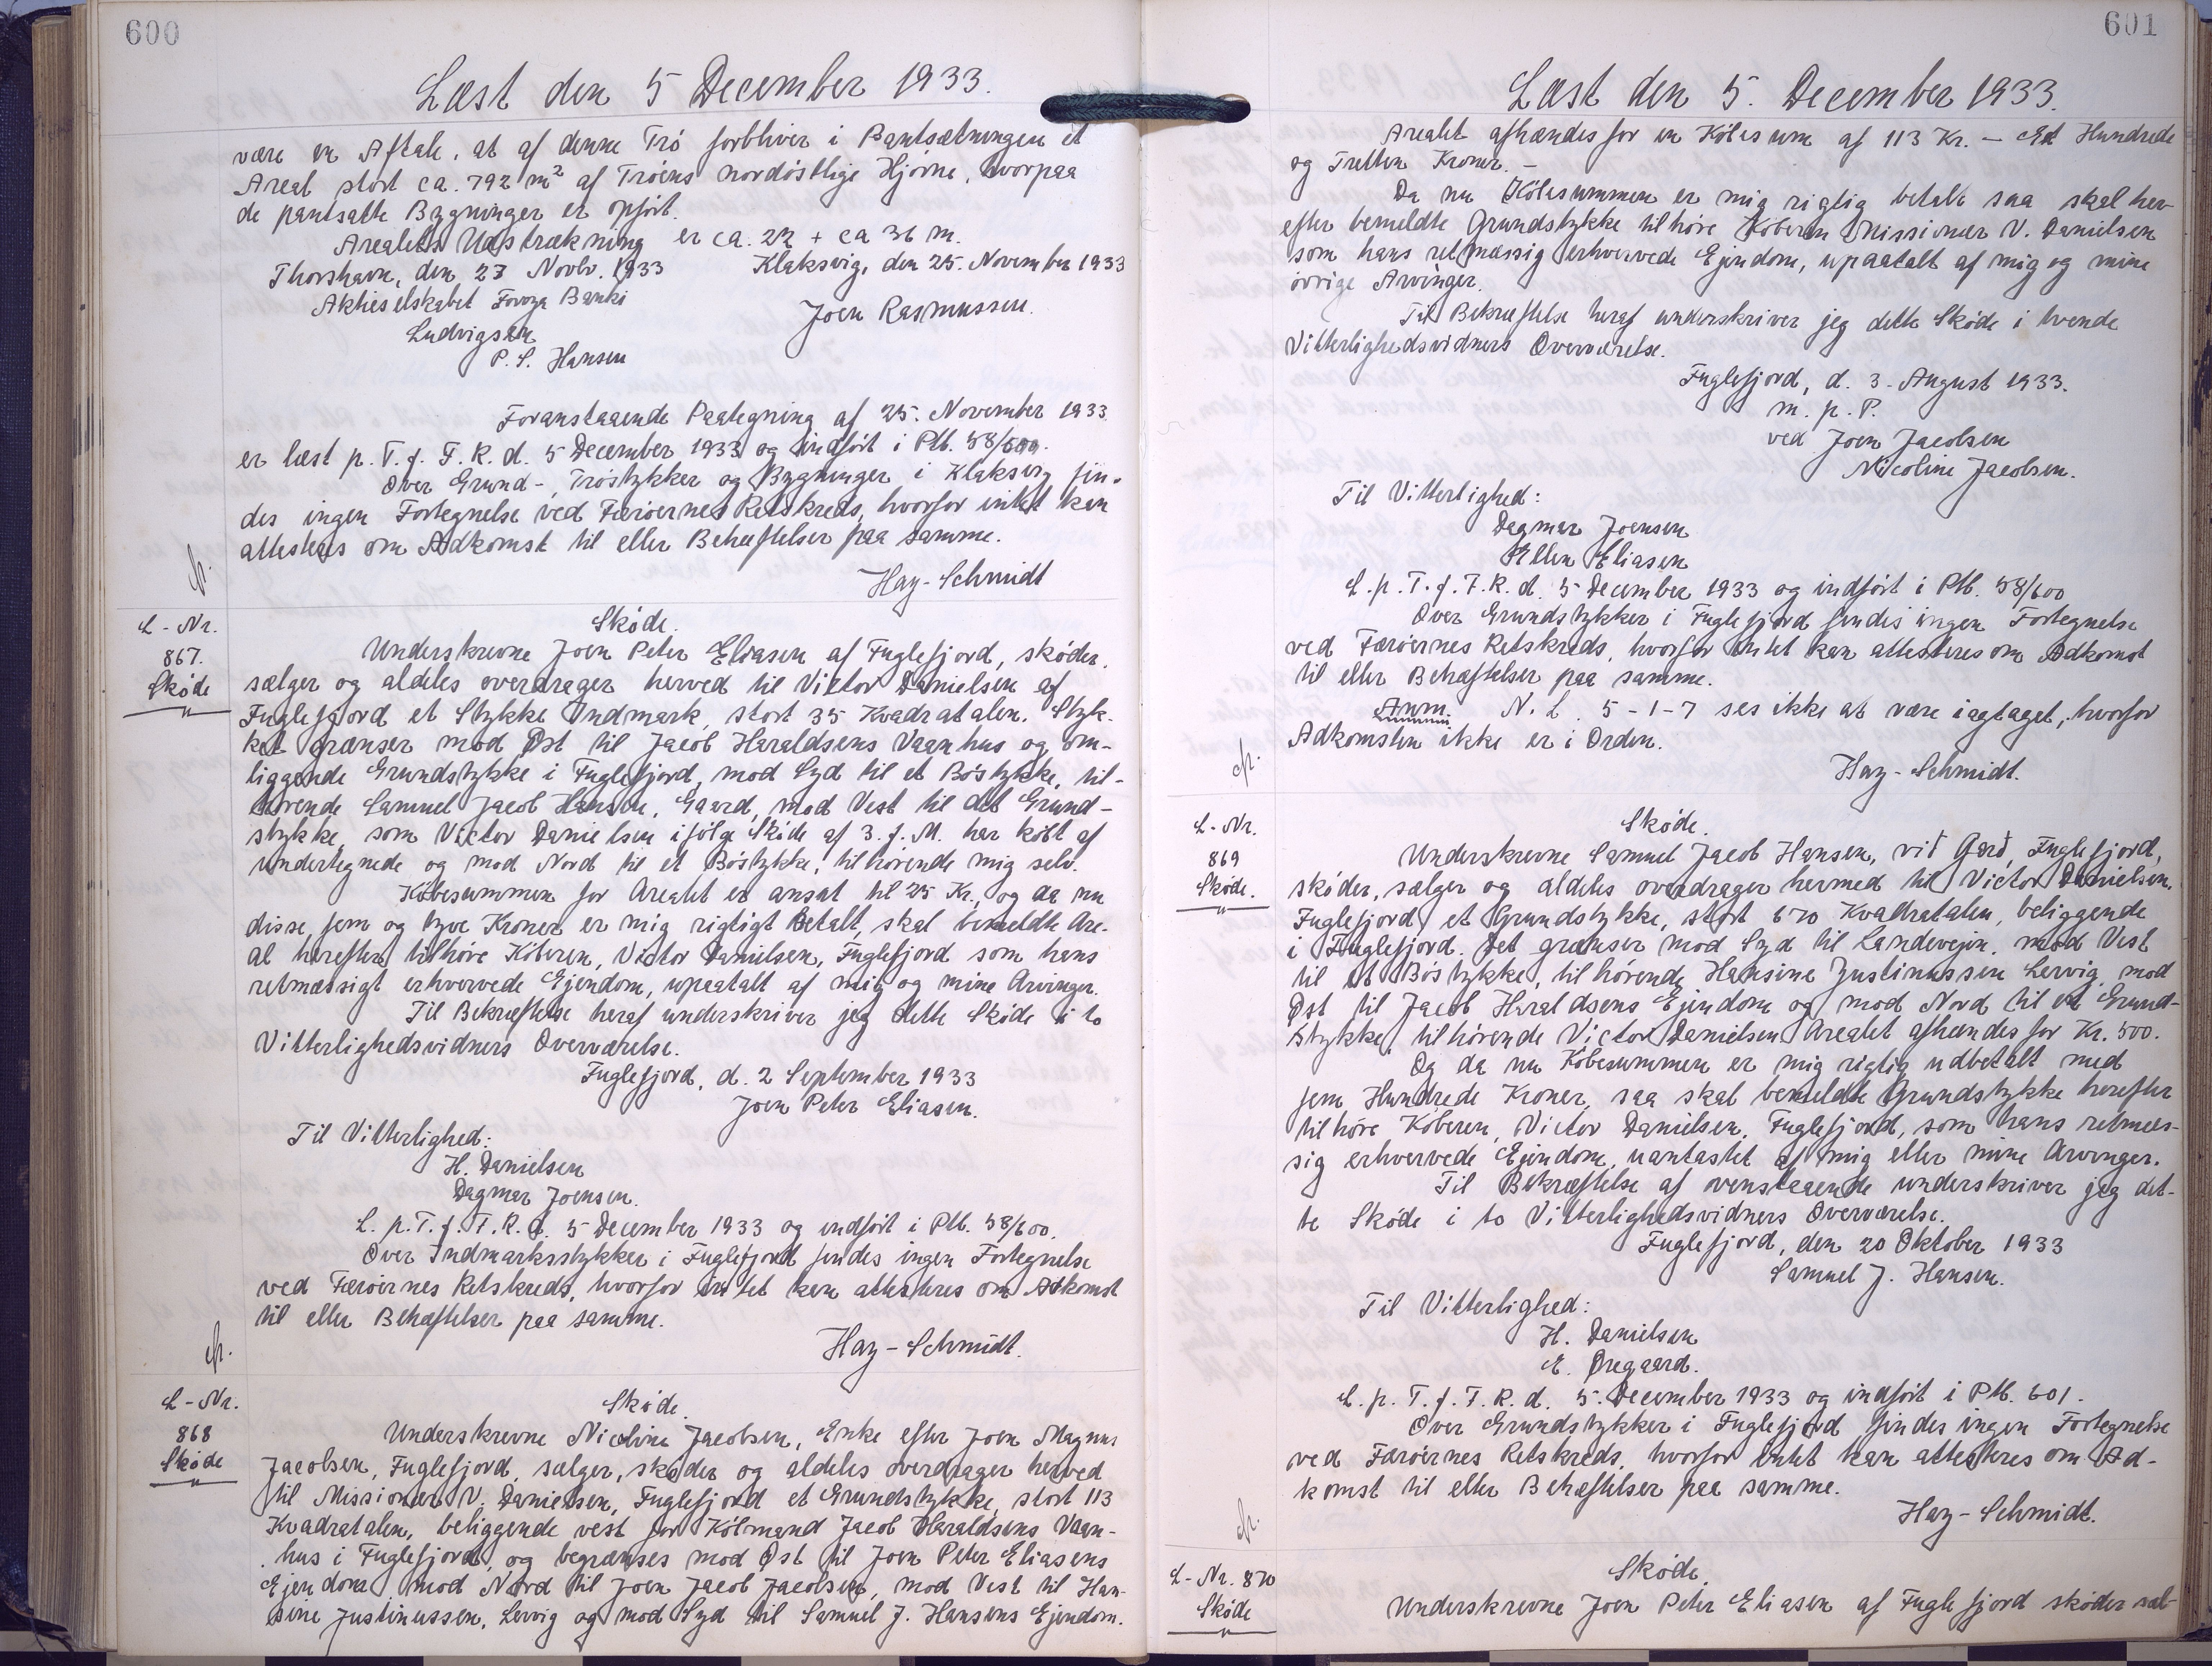 600
Læst den 5 December 1933.
være en Aftale, at af denne Trö forbliver i Pantsætningen et
Areal stort ca. 792 m² af Tröens nordöstlige Hjörne, hvorpaa
de pantsatte Bygninger er opfört.
Arealets Udstrækning er ca. 22 + ca 36 m.
Thorshavn, den 23 Novbr. 1933 Klaksvig, den 25. November 1933
Aktieselskabet Föroya Banki
Joen Rasmussen.
Ludvigsen
P. S. Hansen
Foranstaaende Paategning af 25. November 1933
er læst p. T. f. F. R. d. 5 December 1933 og indfört i Ptb. 58/600.
Over Grund-, Tröstykker og Bygninger i Klaksvig fin-
des ingen Fortegnelse ved Færöernes Retskreds, hvorfor intet kan
attesteres om Adkomst til eller Behæftelser paa samme.
Hay-Schmidt
L-Nr.
867.
Sköde
Sköde.
Underskrevne Joen Peter Eliasen af Fuglefjord, sköder,
sælger og aldeles overdrager herved til Victor Danielsen af
Fuglefjord et Stykke Indmark, stort 35 Kvadratalen. Styk-
ket grænser mod Øst til Jacob Haraldsens Vaanhus og om-
liggende Grundstykke i Fuglefjord, mod Syd til et Böstykke, til-
hörende Samuel Jacob Hansen, Gaard, mod Vest til det Grund-
stykke, som Victor Danielsen ifölge Sköde af 3. f. M. har köbt af
undertegnede og mod Nord til et Böstykke, tilhörende mig selv.
Köbesummen for Arealet er ansat til 25 Kr., og da nu
disse, fem og tyve Kroner er mig rigtigt betalt, skal bemeldte Are-
al herefter tilhöre Köberen, Victor Danielsen, Fuglefjord som hans
retmæssigt erhvervede Ejendom, upaatalt af mig og mine Arvinger.
Til Bekræftelse heraf underskriver jeg dette Sköde i to
Vitterlighedsvidners Overværelse.
Fuglefjord, d. 2 September 1933
Joen Peter Eliasen.
Til Vitterlighed:
H. Danielsen
Dagmar Joensen.
L. p. T. f. F. R. d. 5 December 1933 og indfört i Ptb. 58/600.
Over Indmarksstykker i Fuglefjord findes ingen Fortegnelse
ved Færöernes Retskreds, hvorfor intet kan attesteres om Adkomst
til eller Behæftelser paa samme.
Hay-Schmidt.
L-Nr.
868
Sköde
Sköde.
Underskrevne Nicoline Jacobsen, Enke efter Joen Magnus
Jacobsen, Fuglefjord, sælger, sköder og aldeles overdrager herved
til Missionær V. Danielsen, Fuglefjord et Grundstykke, stort 113
Kvadratalen, beliggende vest for Köbmand Jacob Haraldsens Vaan-
hus i Fuglefjord, og begrænses mod Øst til Joen Peter Eliasens
Ejendom, mod Nord til Joen Jacob Jacobsen, mod Vest til Han-
sine Justinussen, Lervig og mod Syd til Samuel J. Hansens Ejendom.
601
Læst den 5. December 1933.
Arealet afhændes for en Köbesum af 113 Kr. - Et Hundrede
og Tretten Kroner. -
Da nu Köbesummen er mig rigtig betalt saa skal her-
efter bemeldte Grundstykke tilhöre Köberen Missionær V. Danielsen
som hans retmæssig erhvervede Ejendom, upaatalt af mig og mine
övrige Arvinger.
Til Bekræftelse heraf underskriver jeg dette Sköde i tvende
Vitterlighedsvidners Overværelse.
Fuglefjord, d. 3. August 1933.
m. p. P.
ved Joen Jacobsen
Nicoline Jacobsen.
Til Vitterlighed:
Dagmar Joensen
Ellen Eliasen
L. p. T. f. F. R. d. 5 December 1933 og indfört i Ptb. 58/600
Over Grundstykker i Fuglefjord findes ingen Fortegnelse
ved Færöernes Retskreds, hvorfor intet kan attesteres om Adkomst
til eller Behæftelser paa samme.
Anm. N. L. 5-1-7 ses ikke at være iagtaget, hvorfor
Adkomsten ikke er i Orden.
Hay-Schmidt.
L-Nr.
869
Sköde.
Sköde.
Underskrevne Samuel Jacob Hansen, við Garð, Fuglefjord,
sköder, sælger og aldeles overdrager hermed til Victor Danielsen,
Fuglefjord, et Grundstykke, stort 670 Kvadratalen, beliggende
i Fuglefjord. Det grænser mod Syd til Landevejen, mod Vest
til et Böstykke, tilhörende Hansine Justinussen Lervig, mod
Øst til Jacob Haraldsens Ejendom og mod Nord til et Grund-
stykke, tilhörende Victor Danielsen Arealet afhændes for Kr. 500.
Og da nu Köbesummen er mig rigtig udbetalt med
fem Hundrede Kroner, saa skal bemeldte Grundstykke herefter
tilhöre Köberen, Victor Danielsen, Fuglefjord, som hans retmæs-
sig erhvervede Ejendom, uantastet af mig eller mine Arvinger.
Til Bekræftelse af ovenstaaende underskriver jeg det-
te Sköde i to Vitterlighedsvidners Overværelse.
Fuglefjord, den 20 Oktober 1933
Samuel J. Hansen.
Til Vitterlighed:
H. Danielsen
E. Øregaard.
L. p. T. f. F. R. d. 5. December 1933 og indfört i Ptb. 601.
Over Grundstykker i Fuglefjord findes ingen Fortegnelse
ved Færöernes Retskreds, hvorfor intet kan attesteres om Ad-
komst til eller Behæftelser paa samme.
Hay-Schmidt.
L-Nr. 870
Sköde
Sköde.
Underskrevne Joen Peter Eliasen af Fuglefjord sköder sæl-